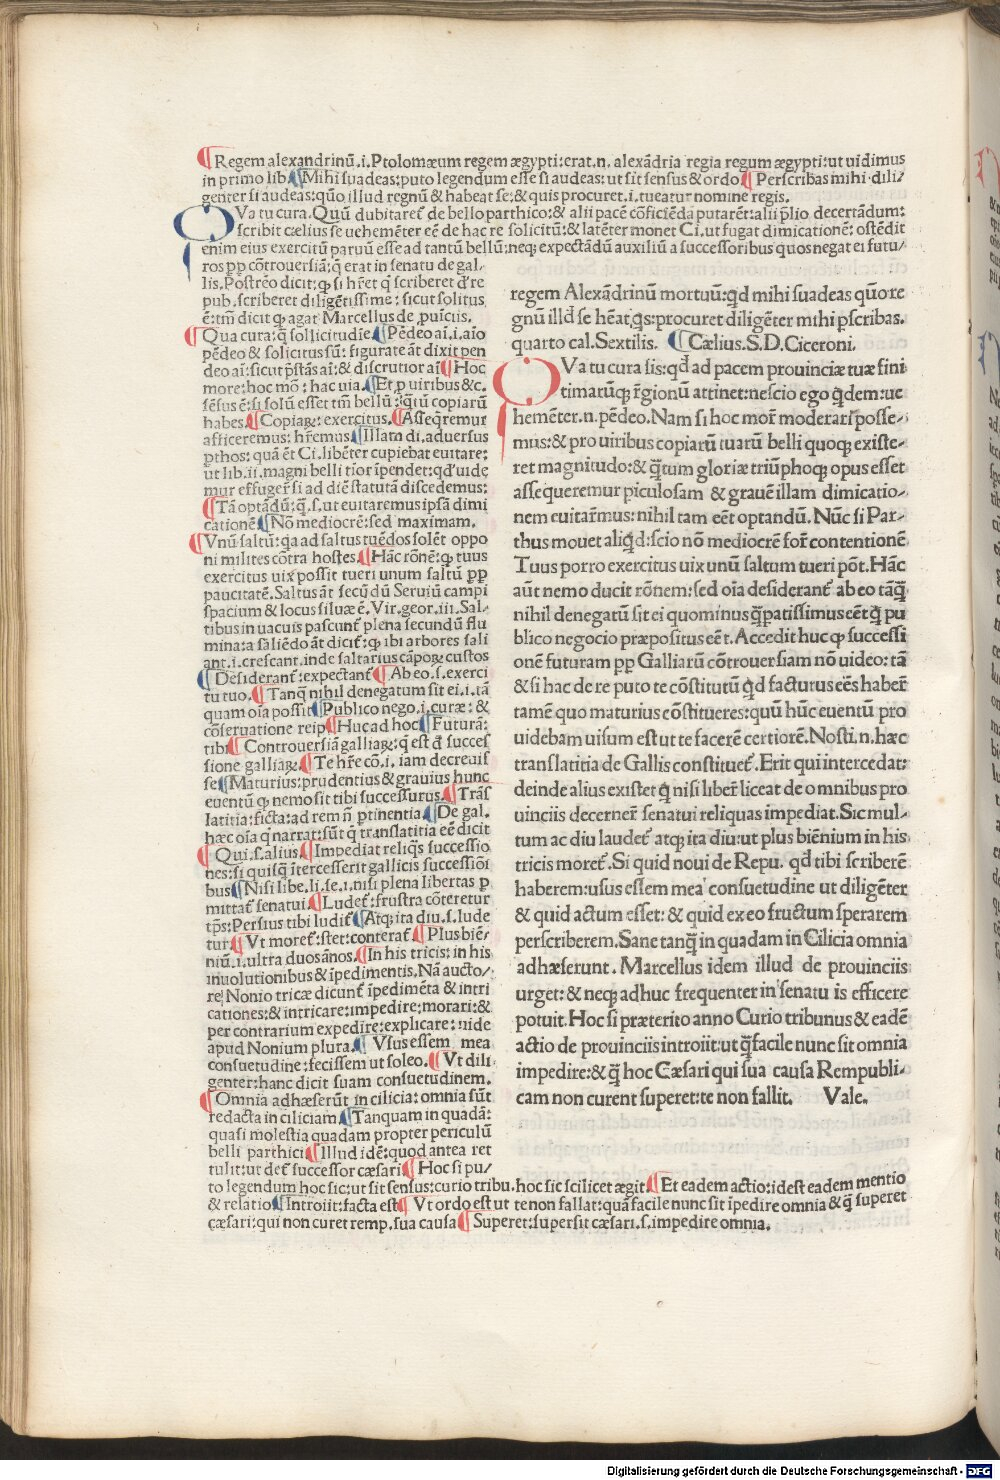 ¶Regem alexandrinū.i.Ptolomæum regem ægypti:erat.n. alexādria regia regum ægypti:ut uidimus
in primo lib.¶Mihi suadeas:puto legendum esse si audeas:ut sit sensus & ordo¶Perscribas mihi dili/
genter si audeas:quō illud regnū & habeat se:& quis procuret.i.tueatur nomine regis.
QVa tu cura.Quū dubitaret de bello parthico:& alii pacē cōficiēda putarēt:alii p̄lio decertādum:
scribit cælius se uehemēter eē de hac re solicitū:& latēter monet Ci.ut fugat dimicationē:ostēdit
enim eius exercitū paruū esse ad tantū bellū:neq; expectādū auxiliū a successoribus quos negat ei futu/
ros pp cōtrouersiā:q̄ erat in senatu de gal/
lis.Postrēo dicit:q si hr̄et q̄ scriberet d're
pub.scriberet diligētissime:sicut solitus
ē:tm̄ dicit q agat Marcellus de puīctis.
¶Qua cura:q̄ sollicitudie¶Pēdeo ai.i.aio
pēdeo & solicitus sū:figurate āt dixit pen
deo ai:sicut p̄stās ai:& discrutior ai¶Hoc
more:hoc mō:hac uia.¶Et p uiribus &c.
sēsus ē:si solū esset tm̄ bellū:q̄tū copiarū
habes.¶Copiaꝝ:exercitus.¶Asseq̄remur
afficeremus:hr̄emus¶Illam di.aduersus
pthos:quā ēt Ci.libēter cupiebat euitare:
ut lib.ii.magni belli tior īpendet:qd' uide
mur effuger̄ si ad diē statutā discedemus:
¶Tā optādū:q̄.s.ut euitaremus ipsā dimi
cationē¶Nō mediocrē:sed maximam.
¶Vnū saltū:q̄a ad saltus tuēdos solēt oppo
ni milites cōtra hostes.¶Hāc rōnē:q tuus
exercitus uix possit tueri unum saltū pp
paucitatē.Saltus āt secūdū Seruiū campi
spacium & locus siluæ ē.Vir.geor.iii.Sal/
tibus in uacuis pascunt plena secundū flu
mina:a saliēdo āt dicit:q ibi arbores sali
ant.i.crescant.inde saltarius cāpoꝝ custos
¶Desiderant:expectant¶Ab eo.s.exerci
tu tuo.¶Tanq̄ nihil denegatum sit ei.i.tā
quam oīa possit¶Publico nego.i.curæ:&
cōseruatione reip¶Huc ad hoc¶Futurā:
tibi¶Controuersiā galliaꝝ:q̄ est d' succes
sione galliaꝝ.¶Te hr̄e cō.i.iam decreuis
se¶Maturius:prudentius & grauius hunc
euentū q nemo sit tibi successurus.¶Trās
latitia:ficta:ad rem n̄ ptinentia¶De gal.
hæc oīa q̄ narrat:sūt q̄ translatitia eē dicit
¶Qui.s.alius¶Impediat reliq̄s successio
nes:si quisq̄ ītercesserit gallicis successiōi
bus¶Nisi libe.li.se.i.nisi plena libertas p
mittat senatui.¶Ludet:frustra cōteretur
tp̄s:Persius tibi ludit¶Atq; ita diu.s.lude
tur¶Vt moret:stet:conterat¶Plus biē/
niū.i.ultra duos ānos.¶In his tricis:in his
inuolutionibus & īpedimentis.Nā aucto/
re Nonio tricæ dicunt īpedimēta & intri
cationes:& intricare:impedire:morari:&
per contrarium expedire:explicare:uide
apud Nonium plura.¶Vsus essem mea
consuetudine:fecissem ut soleo.¶Vt dili
genter:hanc dicit suam consuetudinem.
¶Omnia adhæserūt in cilicia:omnia sūt
redacta in ciliciam¶Tanquam in quadā:
quasi molestia quadam propter periculū
belli parthici¶Illud idē:quod antea ret
tulit:ut det successor cæsari¶Hoc si pu/
to legendum hoc sic:ut sit sensus:curio tribu.hoc sic scilicet ægit¶Et eadem actio:idest eadem mentio
& relatio¶Introiit:facta est¶Vt ordo est ut te non fallat:quā facile nunc sit īpedire omnia & q̄ superet
cæsari:qui non curet remp.sua causa¶Superet:supersit cæsari.s.impedire omnia.
regem Alexādrinū mortuū:qd mihi suadeas quō re
gnū illd se hēat q̄s:procuret diligēter mihi pscribas.
quarto cal.Sextilis. ¶Cælius.S.D.Ciceroni.
QVa tu cura sis:qd ad pacem prouinciæ tuæ fini
timarūq; r̄gionū attinet:nescio ego q̄dem:ue
hemēter.n.pēdeo.Nam si hoc mor̄ moderari posse/
mus:& pro uiribus copiarū tuarū belli quoq; existe/
ret magnitudo:& q̄tum gloriæ triūphoq; opus esset
assequeremur piculosam & grauē illam dimicatio/
nem euitar̄mus:nihil tam eēt optandū.Nūc si Par/
thus mouet aliq̄d:scio nō mediocrē for̄ contentionē
Tuus porro exercitus uix unū saltum tueri pōt.Hāc
aūt nemo ducit rōnem:sed oīa desiderant ab eo tāq̄
nihil denegatū sit ei quominus q̄patissimus eēt q̄ pu
blico negocio præpositus eēt.Accedit huc q successi
onē futuram pp Galliarū cōtrouersiam nō uideo:tā
& si hac de re puto te cōstitutū qd facturus eēs haber̄
tamē quo maturius cōstitueres:quū hūc euentū pro
uidebam uisum est ut te facerē certiorē.Nosti.n.hæc
translatitia de Gallis constituet.Erit qui intercedat:
deinde alius existet q̄ nisi liber̄ liceat de omnibus pro
uinciis decerner̄ senatui reliquas impediat.Sic mul/
tum ac diu laudet atq; ita diu:ut plus biēnium in his
tricis moret.Si quid noui de Repu. qd tibi scriberē
haberem:usus essem mea consuetudine ut diligēter
& quid actum esset:& quid ex eo fructum sperarem
perscriberem.Sane tanq̄ in quadam in Cilicia omnia
adhæserunt.Marcellus idem illud de prouinciis
urget:& neq; adhuc frequenter in senatu is efficere
potuit.Hoc si præterito anno Curio tribunus & eadē
actio de prouinciis introiit:ut q̄facile nunc sit omnia
impedire:& q̄ hoc Cæsari qui sua causa Rempubli/
cam non curent superet:te non fallit. Vale.
Digitalisierung gefördert durch die Deutsche Forschungsgemeinschaft - DFG